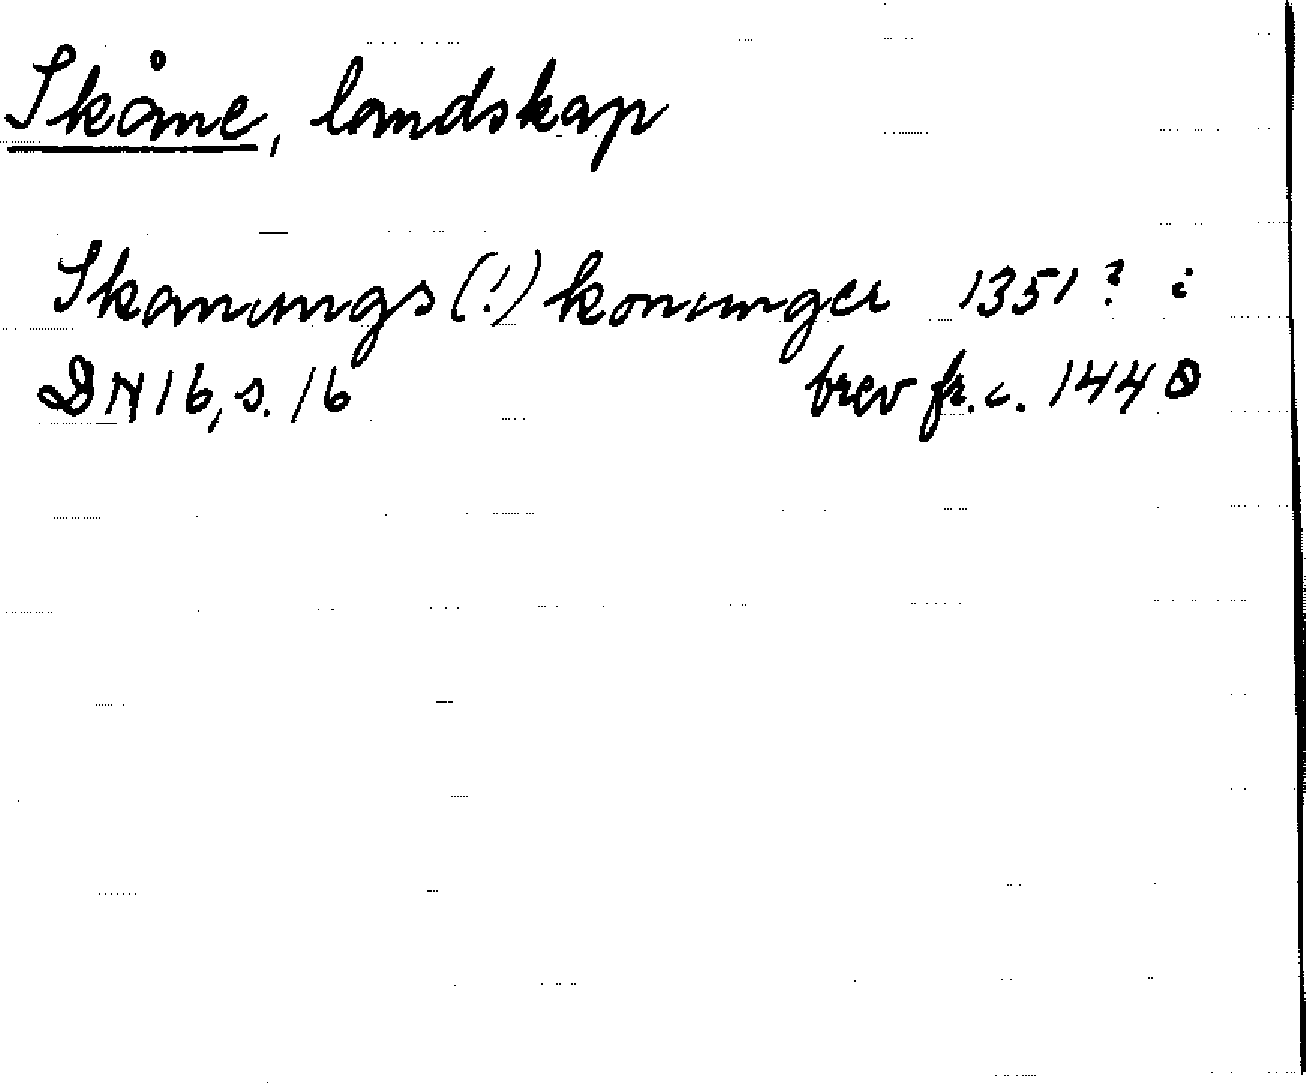 Skåne, landskap
Skanungs (!) konunger 1351? i
DN 16, s. 16 brev fr. c. 1440